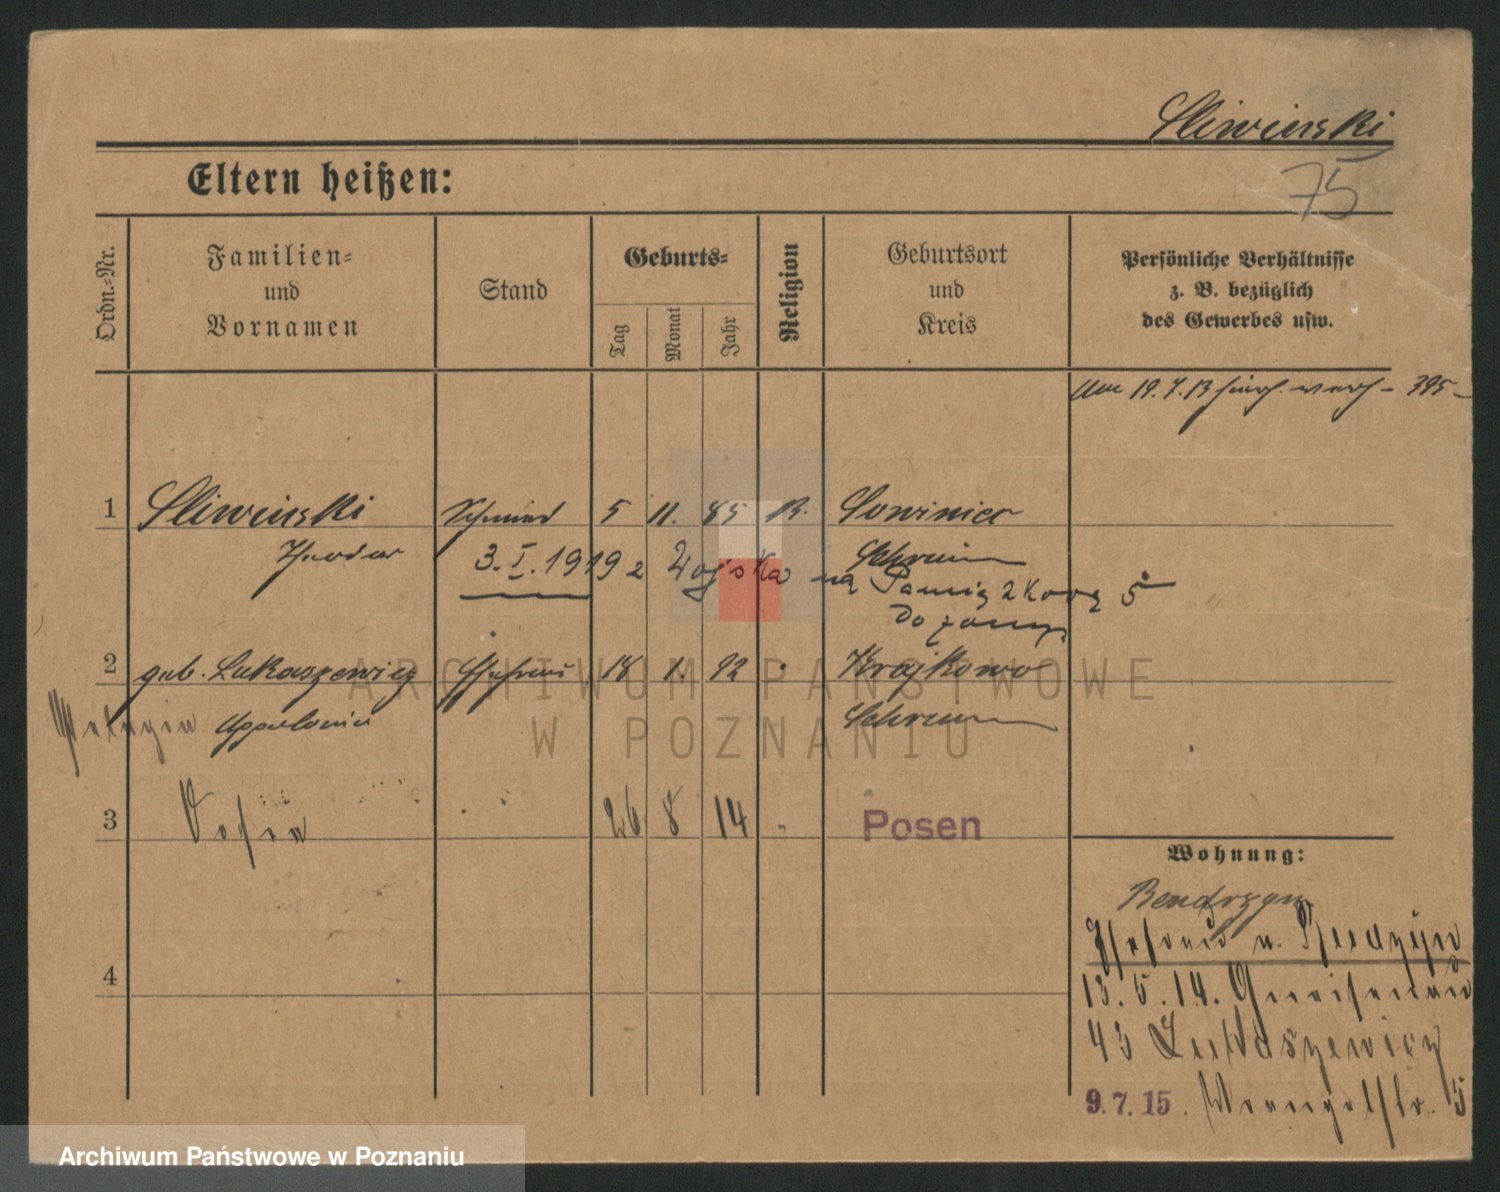 Sliwinski
75
Eltern heißen:
Ordn.-Nr.
Familien-
und
Vornamen
Stand
Geburts-
Tag
Monat
Jahr
Religion
Geburtsort
und
Kreis
Persönliche Verhältnisse
z. B. bezüglich
des Gewerbes usw.
19.7.13 395
1 Sliwinski Schmied 5 11. 85 K. Sowiniec
Theodor Schrimm
3.I.1919 z Wojska na 5
2 geb. Lukaszewicz Ehefrau 18 1. 92 Krajkowo
Pelagia Appolonia Schrimm
3 Sofia 26 8 14 Posen
4
Wohnung:
13.5.14. Gneisenau
43 Lukaszewicz
9.7.15. Wrangelstr. 5
ARCHIWUM PAŃSTWOWE
W POZNANIU
Archiwum Państwowe w Poznaniu